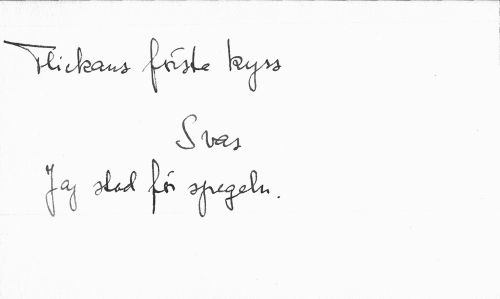 Flickans förste kyss
Svas
Jag stod för spegeln.